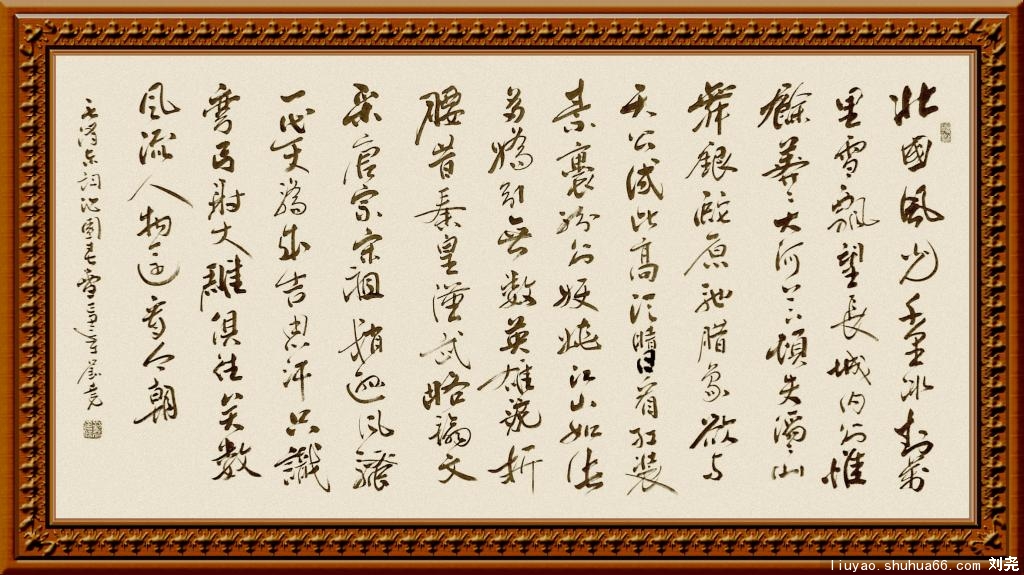 北國風光千里冰封萬
里雪飄望長城內外惟
餘莽々大河上下頓失滔々山
舞銀蛇原馳腊象欲与
天公试比高须晴日看红装
素裹分外妖娆江山如此
多嬌引無數英雄競折
腰昔秦皇漢武略输文
采唐宗宋祖稍逊风騷
一代天骄成吉思汗只識
彎弓射大雕俱往矣數
風流人物还看今朝
毛泽东词沁園春雪 刘尧
liuyao.shuhua66.com 刘尧